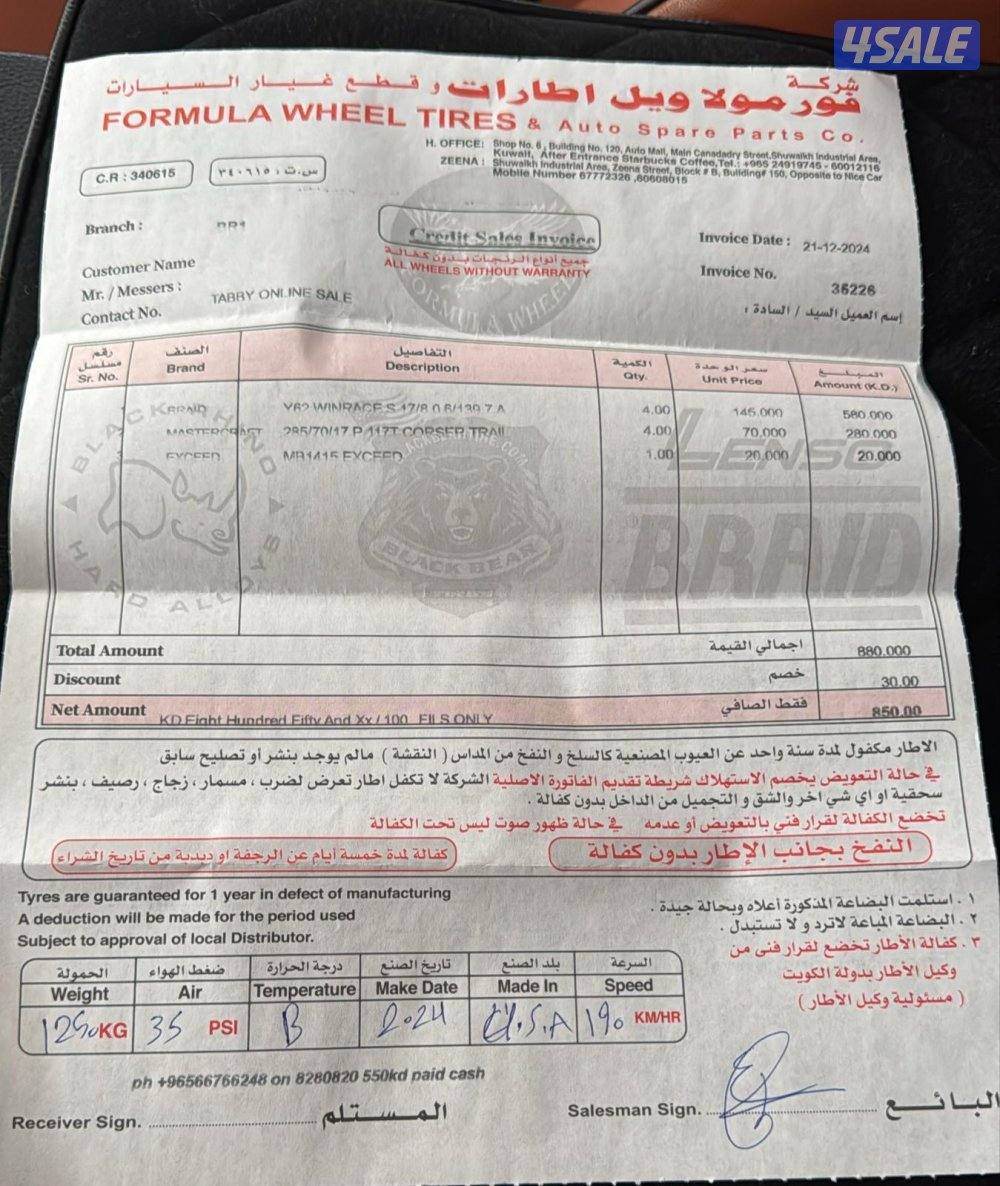 4SALE
شركة
فورمولا ويل اطارات و قطع غيار السيارات
FORMULA WHEEL TIRES & Auto Spare Parts Co.
H. OFFICE: Shop No. 6, Building No. 120, Auto Mall, Main Canadadry Street, Shuwaikh Industrial Area,
Kuwait, After Entrance Starbucks Coffee, Tel.: +965 24919745 - 60012116
ZEENA : Shuwaikh Industrial Area, Zeena Street, Block # B, Building# 150, Opposite to Nice Car
Mobile Number 67772326 ,60608015
C.R : 340615
س.ت : ٣٤٠٦١٥
Branch :
Credit Sales Invoice
جميع أنواع الرنجات بدون كفالة
ALL WHEELS WITHOUT WARRANTY
Invoice Date : 21-12-2024
Invoice No. 36226
Customer Name
Mr. / Messers : TABBY ONLINE SALE
إسم العميل السيد / السادة :
Contact No.
FORMULA WHEEL
رقم مسلسل الصنف التفاصيل الكمية سعر الوحدة المبلغ
Sr. No. Brand Description Qty. Unit Price Amount (K.D.)
BRAID Y62 WINRACE S 17/8.0 6/139.7 A 4.00 145.000 580.000
MASTERCRAFT 285/70/17 P 117T CORSER TRAIL 4.00 70.000 280.000
EXCEED MR1415 EXCEED 1.00 20.000 20.000
BLACK RHINO
HARD ALLOYS
BLACK BEAR
LENSO
BRAID
Total Amount اجمالي القيمة 880.000
Discount خصم 30.00
Net Amount KD Eight Hundred Fifty And Xx / 100 FILS ONLY فقط الصافي 850.00
الاطار مكفول لمدة سنة واحد عن العيوب المصنعية كالسلخ و النفخ من المداس ( النقشة ) مالم يوجد بنشر أو تصليح سابق
في حالة التعويض بخصم الاستهلاك شريطة تقديم الفاتورة الاصلية الشركة لا تكفل اطار تعرض لضرب ، مسمار ، زجاج ، رصيف ، بنشر
سحقية او اي شي اخر والشق و التجميل من الداخل بدون كفالة .
تخضع الكفالة لقرار فني بالتعويض أو عدمه في حالة ظهور صوت ليس تحت الكفالة
النفخ بجانب الإطار بدون كفالة
كفالة لمدة خمسة أيام عن الرجفة او ديدبة من تاريخ الشراء
Tyres are guaranteed for 1 year in defect of manufacturing
A deduction will be made for the period used
Subject to approval of local Distributor.
١ . استلمت البضاعة المذكورة أعلاه وبحالة جيدة .
٢ . البضاعة المباعة لاترد و لا تستبدل .
٣ . كفالة الأطار تخضع لقرار فنى من
وكيل الأطار بدولة الكويت
( مسئولية وكيل الأطار )
الحمولة ضغط الهواء درجة الحرارة تاريخ الصنع بلد الصنع السرعة
Weight Air Temperature Make Date Made In Speed
1250 KG 35 PSI B 2024 U.S.A 190 KM/HR
ph +96566766248 on 8280820 550kd paid cash
Receiver Sign. المستلم
Salesman Sign. البائع